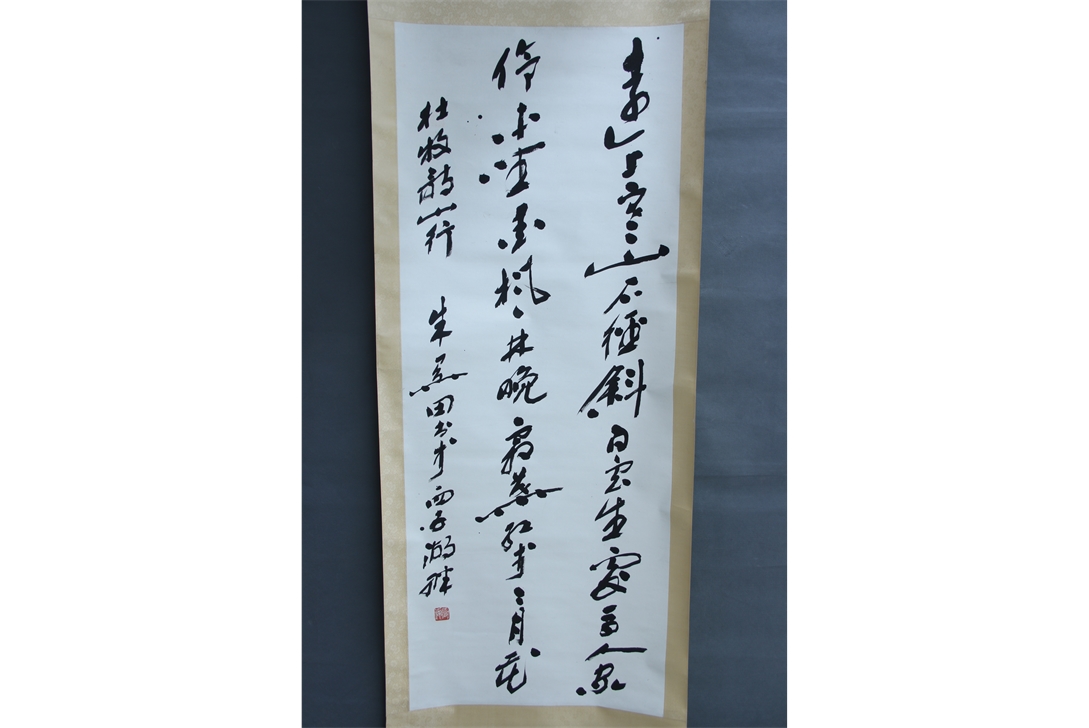 遠上寒山石徑斜白雲生處有人家
停車坐愛楓林晚霜葉紅於二月花
杜牧詩山行 朱田书於西子湖畔